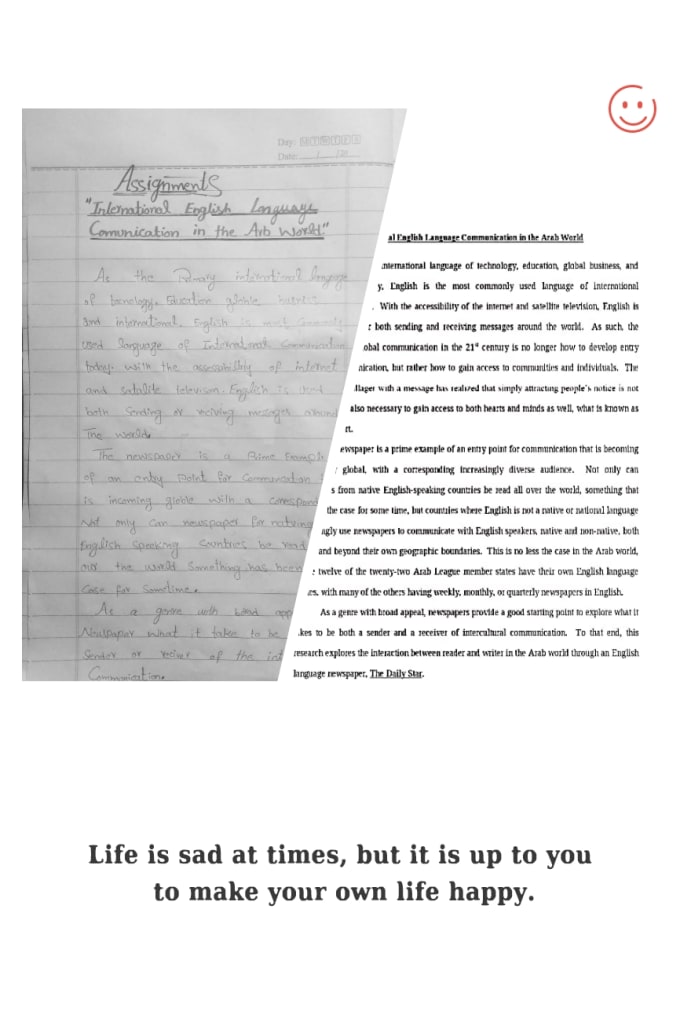 Day: M T W T F S
Date: / /20
Assignments
"International English Language
Comunication in the Arb World"
As the Primary international language
of tecnology. Education globle busniss
and international. English is most Commonly
used language of International Communication
today. with the assessibility of internet
and satalite televison. English is used
both Sending or reciving messages around
The world.
The newspaper is a Prime Example
of an entry Point for Communication
is incoming globle with a correspond
Not only can newspaper for nativing
English Speaking Countries be read
our the world Something has been
Case for Sometime.
As a genre with broad app
Newspaper what it takes to be
Sender or reciver of the int
Communication.
al English Language Communication in the Arab World
international language of technology, education, global business, and
y, English is the most commonly used language of international
. With the accessibility of the internet and satellite television, English is
r both sending and receiving messages around the world. As such, the
obal communication in the 21st century is no longer how to develop entry
nication, but rather how to gain access to communities and individuals. The
illager with a message has realized that simply attracting people's notice is not
also necessary to gain access to both hearts and minds as well, what is known as
rt.
ewspaper is a prime example of an entry point for communication that is becoming
global, with a corresponding increasingly diverse audience. Not only can
s from native English-speaking countries be read all over the world, something that
the case for some time, but countries where English is not a native or national language
ngly use newspapers to communicate with English speakers, native and non-native, both
and beyond their own geographic boundaries. This is no less the case in the Arab world,
e twelve of the twenty-two Arab League member states have their own English language
es, with many of the others having weekly, monthly, or quarterly newspapers in English.
As a genre with broad appeal, newspapers provide a good starting point to explore what it
kes to be both a sender and a receiver of intercultural communication. To that end, this
research explores the interaction between reader and writer in the Arab world through an English
language newspaper, The Daily Star.
Life is sad at times, but it is up to you
to make your own life happy.